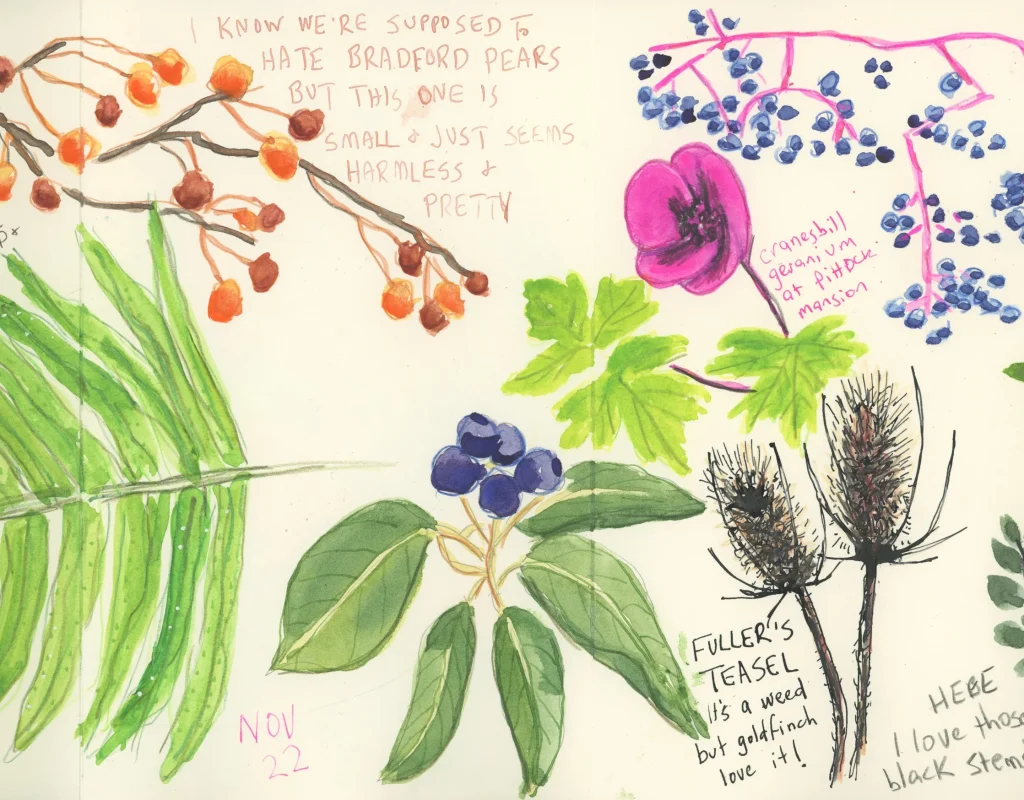 I KNOW WE'RE SUPPOSED TO
HATE BRADFORD PEARS
BUT THIS ONE IS
SMALL & JUST SEEMS
HARMLESS &
PRETTY
cranesbill
geranium
at pittock
mansion
FULLER'S
TEASEL
It's a weed
but goldfinch
love it!
NOV
22
HEBE
I love those
black stems